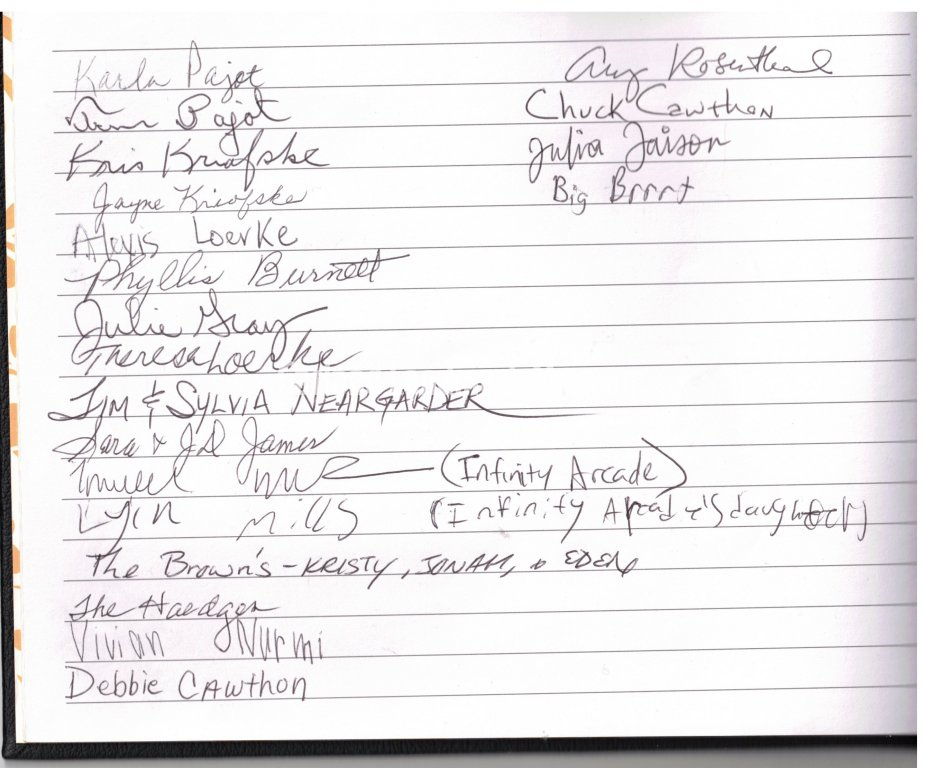 Karla Pajot
Ann Pajot
Kris Kriofske
Jayne Kriofske
Alexis Loerke
Phyllis Burnett
Julie Gray
Theresa Loerke
JIM & SYLVIA NEARGARDER
Sara & JD James
(Infinity Arcade)
Lyin Mills (Infinity Arcade's daughter)
The Brown's - KRISTY, JONAH, & EDEN
The Haedgen
Vivian Nurmi
Debbie CAwthon
Amy Rosenthal
Chuck Cawthon
Julia Jaison
Big Brrrt